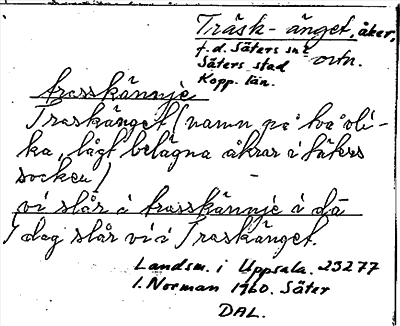 Träsk-änget, åker,
f.d. Säters sn
Säters stad ortn.
Kopp. län.
trasskännje
Traskänget (namn på två oli-
ka, lågt belägna åkrar i Säters
socken)
vi slår i trasskännje i dá
I dag slår vi i Traskänget.
Landsm. i Uppsala. 23277
I. Norman 1960. Säter
DAL.